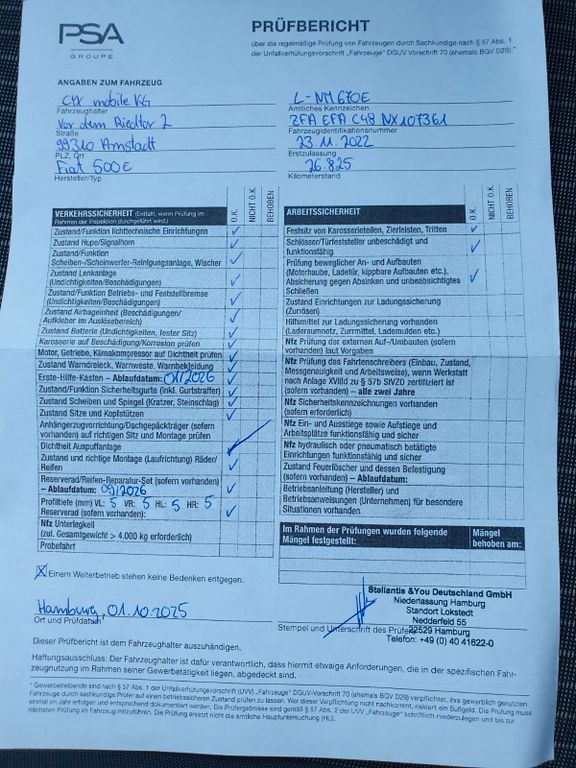 PSA
GROUPE
PRÜFBERICHT
über die regelmäßige Prüfung von Fahrzeugen durch Sachkundige nach § 57 Abs. 1
der Unfallverhütungsvorschrift „Fahrzeuge" DGUV Vorschrift 70 (ehemals BGV D29).*
ANGABEN ZUM FAHRZEUG
mobile KG
Fahrzeughalter
Vor dem Riedtor 2
Straße
99310 Arnstadt
PLZ, Ort
Fiat 500E
Hersteller/Typ
L-NM 670E
Amtliches Kennzeichen
ZFA EFA C48 NX107361
Fahrzeugidentifikationsnummer
23.11.2022
Erstzulassung
26.825
Kilometerstand
VERKEHRSSICHERHEIT (Entfällt, wenn Prüfung im
Rahmen der Inspektion durchgeführt wird.)
O.K.
NICHT O.K.
BEHOBEN
Zustand/Funktion lichttechnische Einrichtungen
Zustand Hupe/Signalhorn
Zustand/Funktion
Scheiben-/Scheinwerfer-Reinigungsanlage, Wischer
Zustand Lenkanlage
(Undichtigkeiten/Beschädigungen)
Zustand/Funktion Betriebs- und Feststellbremse
(Undichtigkeiten/Beschädigungen)
Zustand Airbageinheit (Beschädigungen/
Aufkleber im Auslösebereich)
Zustand Batterie (Undichtigkeiten, fester Sitz)
Karosserie auf Beschädigung/Korrosion prüfen
Motor, Getriebe, Klimakompressor auf Dichtheit prüfen
Zustand Warndreieck, Warnweste, Warnbekleidung
Erste-Hilfe-Kasten – Ablaufdatum: 01/2026
Zustand/Funktion Sicherheitsgurte (inkl. Gurtstraffer)
Zustand Scheiben und Spiegel (Kratzer, Steinschlag)
Zustand Sitze und Kopfstützen
Anhängerzugvorrichtung/Dachgepäckträger (sofern
vorhanden) auf richtigen Sitz und Montage prüfen
Dichtheit Auspuffanlage
Zustand und richtige Montage (Laufrichtung) Räder/
Reifen
Reserverad/Reifen-Reparatur-Set (sofern vorhanden)
– Ablaufdatum: 09/2026
Profiltiefe (mm) VL: 5 VR: 5 HL: 5 HR: 5
Reserverad (sofern vorhanden):
Nfz Unterlegkeil
(zul. Gesamtgewicht > 4.000 kg erforderlich)
Probefahrt
ARBEITSSICHERHEIT
O.K.
NICHT O.K.
BEHOBEN
Festsitz von Karosserieteilen, Zierleisten, Tritten
Schlösser/Türfeststeller unbeschädigt und
funktionsfähig
Prüfung beweglicher An- und Aufbauten
(Motorhaube, Ladetür, kippbare Aufbauten etc.),
Absicherung gegen Absinken und unbeabsichtigtes
Schließen
Zustand Einrichtungen zur Ladungssicherung
(Zurrösen)
Hilfsmittel zur Ladungssicherung vorhanden
(Laderaumnetz, Zurrmittel, Lademulden etc.)
Nfz Prüfung der externen Auf-/Umbauten (sofern
vorhanden) laut Vorgaben
Nfz Prüfung des Fahrtenschreibers (Einbau, Zustand,
Messgenauigkeit und Arbeitsweise), wenn Werkstatt
nach Anlage XVIIId zu § 57b StVZO zertifiziert ist
(sofern vorhanden) – alle zwei Jahre
Nfz Sicherheitskennzeichnungen vorhanden
(sofern erforderlich)
Nfz Ein- und Ausstiege sowie Aufstiege und
Arbeitsplätze funktionsfähig und sicher
Nfz hydraulisch oder pneumatisch betätigte
Einrichtungen funktionsfähig und sicher
Zustand Feuerlöscher und dessen Befestigung
(sofern vorhanden) – Ablaufdatum:
Betriebsanleitung (Hersteller) und
Betriebsanweisungen (Unternehmen) für besondere
Situationen vorhanden
Im Rahmen der Prüfungen wurden folgende
Mängel festgestellt:
Mängel
behoben am:
Einem Weiterbetrieb stehen keine Bedenken entgegen.
Hamburg, 01.10.2025
Ort und Prüfdatum
Stellantis &You Deutschland GmbH
Niederlassung Hamburg
Standort Lokstedt
Nedderfeld 55
22529 Hamburg
Telefon: +49 (0) 40 41622-0
Stempel und Unterschrift des Prüfers
Dieser Prüfbericht ist dem Fahrzeughalter auszuhändigen.
Haftungsausschluss: Der Fahrzeughalter ist dafür verantwortlich, dass hiermit etwaige Anforderungen, die in der spezifischen Fahr-
zeugnutzung im Rahmen seiner Gewerbetätigkeit liegen, abgedeckt sind.
* Gewerbetreibende sind nach § 57 Abs. 1 der Unfallverhütungsvorschrift (UVV) „Fahrzeuge" DGUV-Vorschrift 70 (ehemals BGV D29) verpflichtet, ihre gewerblich genutzten
Fahrzeuge durch sachkundige Prüfer auf einen betriebssicheren Zustand prüfen zu lassen. Wer dieser Verpflichtung nicht nachkommt, riskiert ein Bußgeld. Die Prüfung muss
einmal im Jahr erfolgen und entsprechend dokumentiert werden. Die Prüfergebnisse sind gemäß § 57 Abs. 2 der UVV „Fahrzeuge" schriftlich niederzulegen und bis zur
nächsten Prüfung im Fahrzeug mitzuführen. Die Prüfung ersetzt nicht die amtliche Hauptuntersuchung (HU).